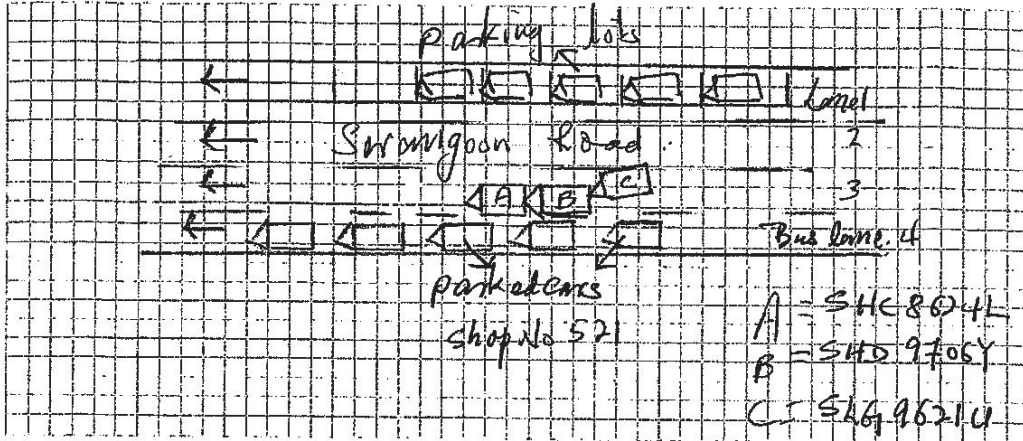 Parking lots
Lane 1
Serangoon Road
2
A B C
3
Bus lane. 4
parked cars
shop No 521
A = SHC 8624L
B = SHD 9706Y
C = SLG 9621U